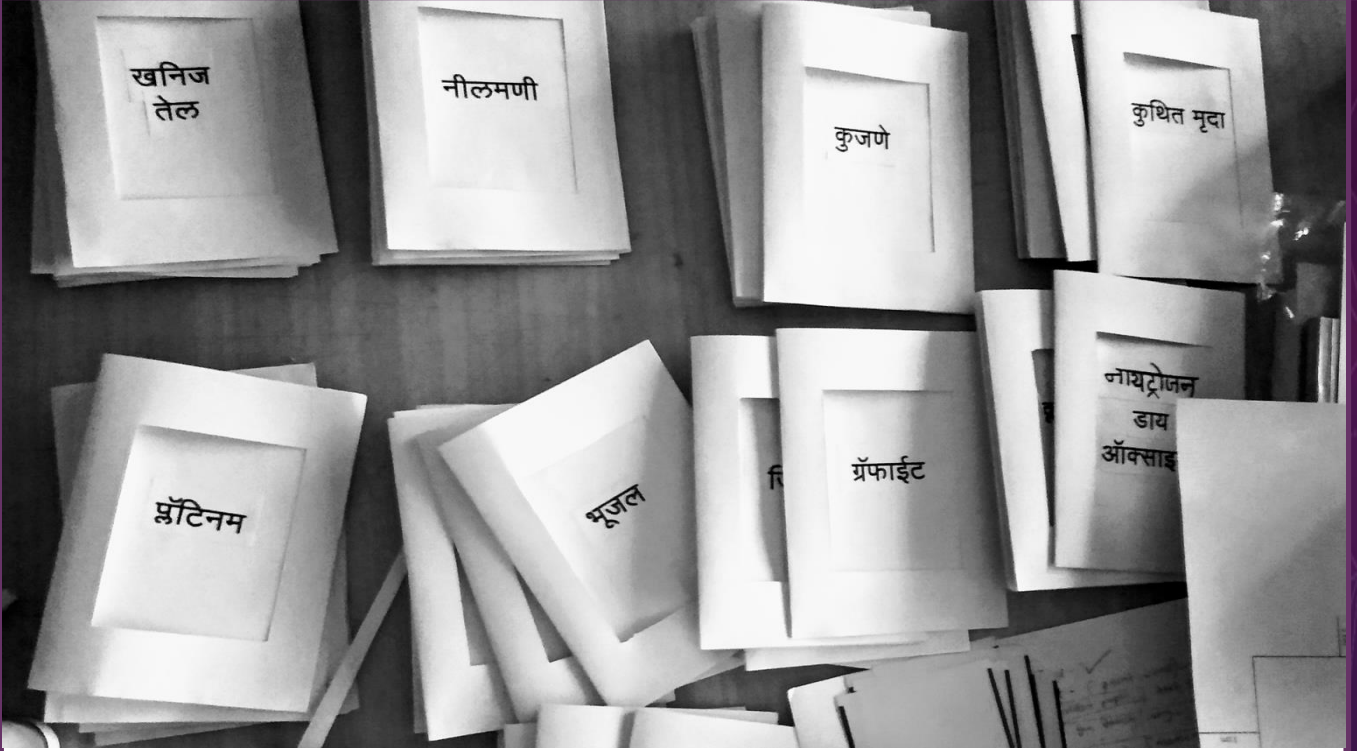 खनिज
तेल
नीलमणी
कुजणे
कुथित मृदा
प्लॅटिनम
भूजल
ग्रॅफाईट
नायट्रोजन
डाय